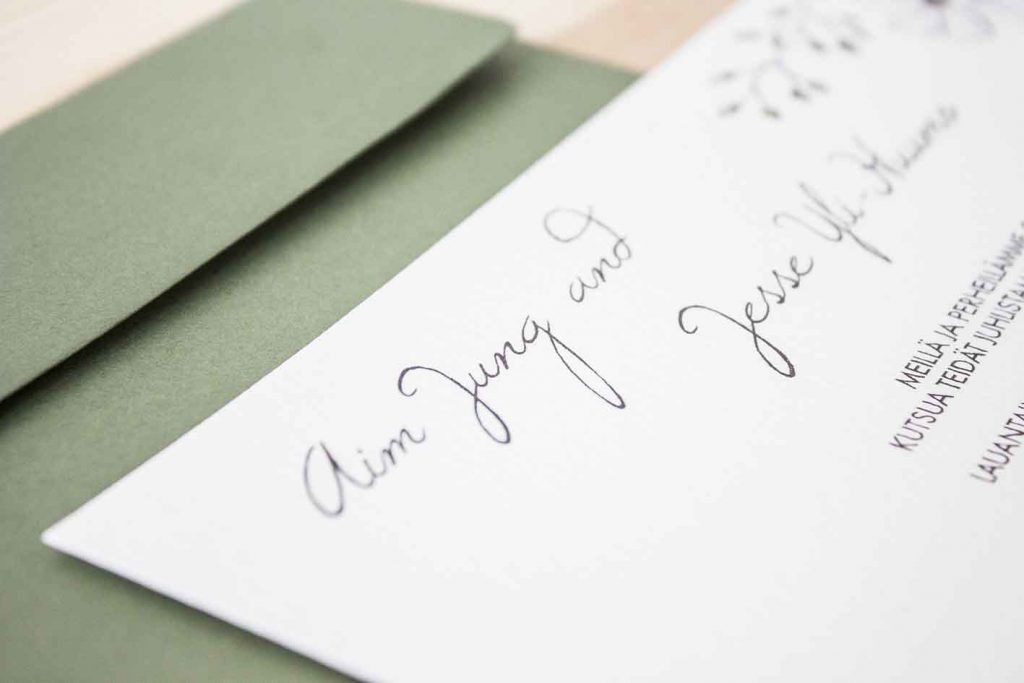 Aim Jung and
Jesse Yli-
MEILLÄ JA PERHEILLÄMME
KUTSUA TEIDÄT JUHLISTA
LAUANTAI